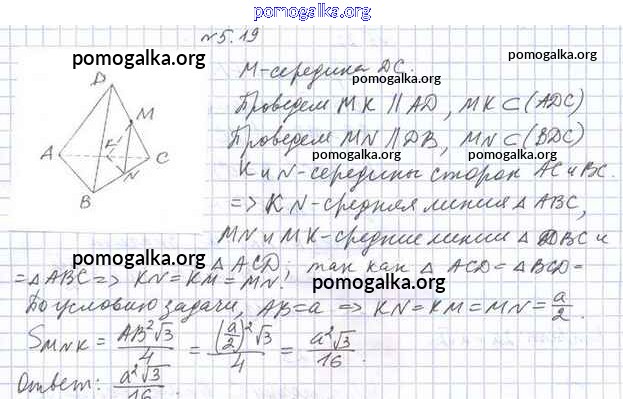 pomogalka.org
№5.19
pomogalka.org
pomogalka.org
М-середина DC.
D
Проведем MK || AD, MK ⊂ (ADC)
pomogalka.org
pomogalka.org
M
Проведем MN || DB, MN ⊂ (BDC)
A
K
C
pomogalka.org
pomogalka.org
N
K и N-середины сторон AC и BC.
B
=> KN-средняя линия △ ABC,
MN и MK-средние линии △ DBC и
pomogalka.org
△ ACD; так как △ ACD = △ BCD =
= △ ABC => KN = KM = MN.
pomogalka.org
По условию задачи, AB = a => KN = KM = MN = a/2
S MNK = AB²√3/4 = (a/2)²√3/4 = a²√3/16.
pomogalka.org
pomogalka.org
Ответ: a²√3/16.